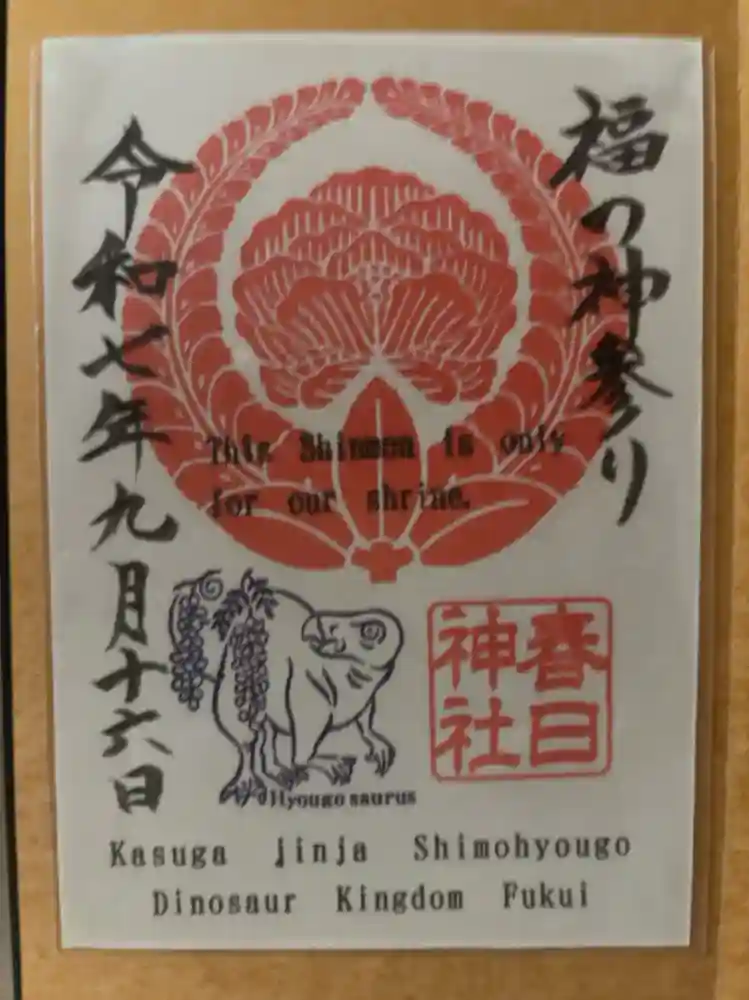 福の神参り
令和七年九月十六日
This Shinmon is only
for our shrine.
春日
神社
Hyougosaurus
Kasuga jinja Shimohyougo
Dinosaur Kingdom Fukui